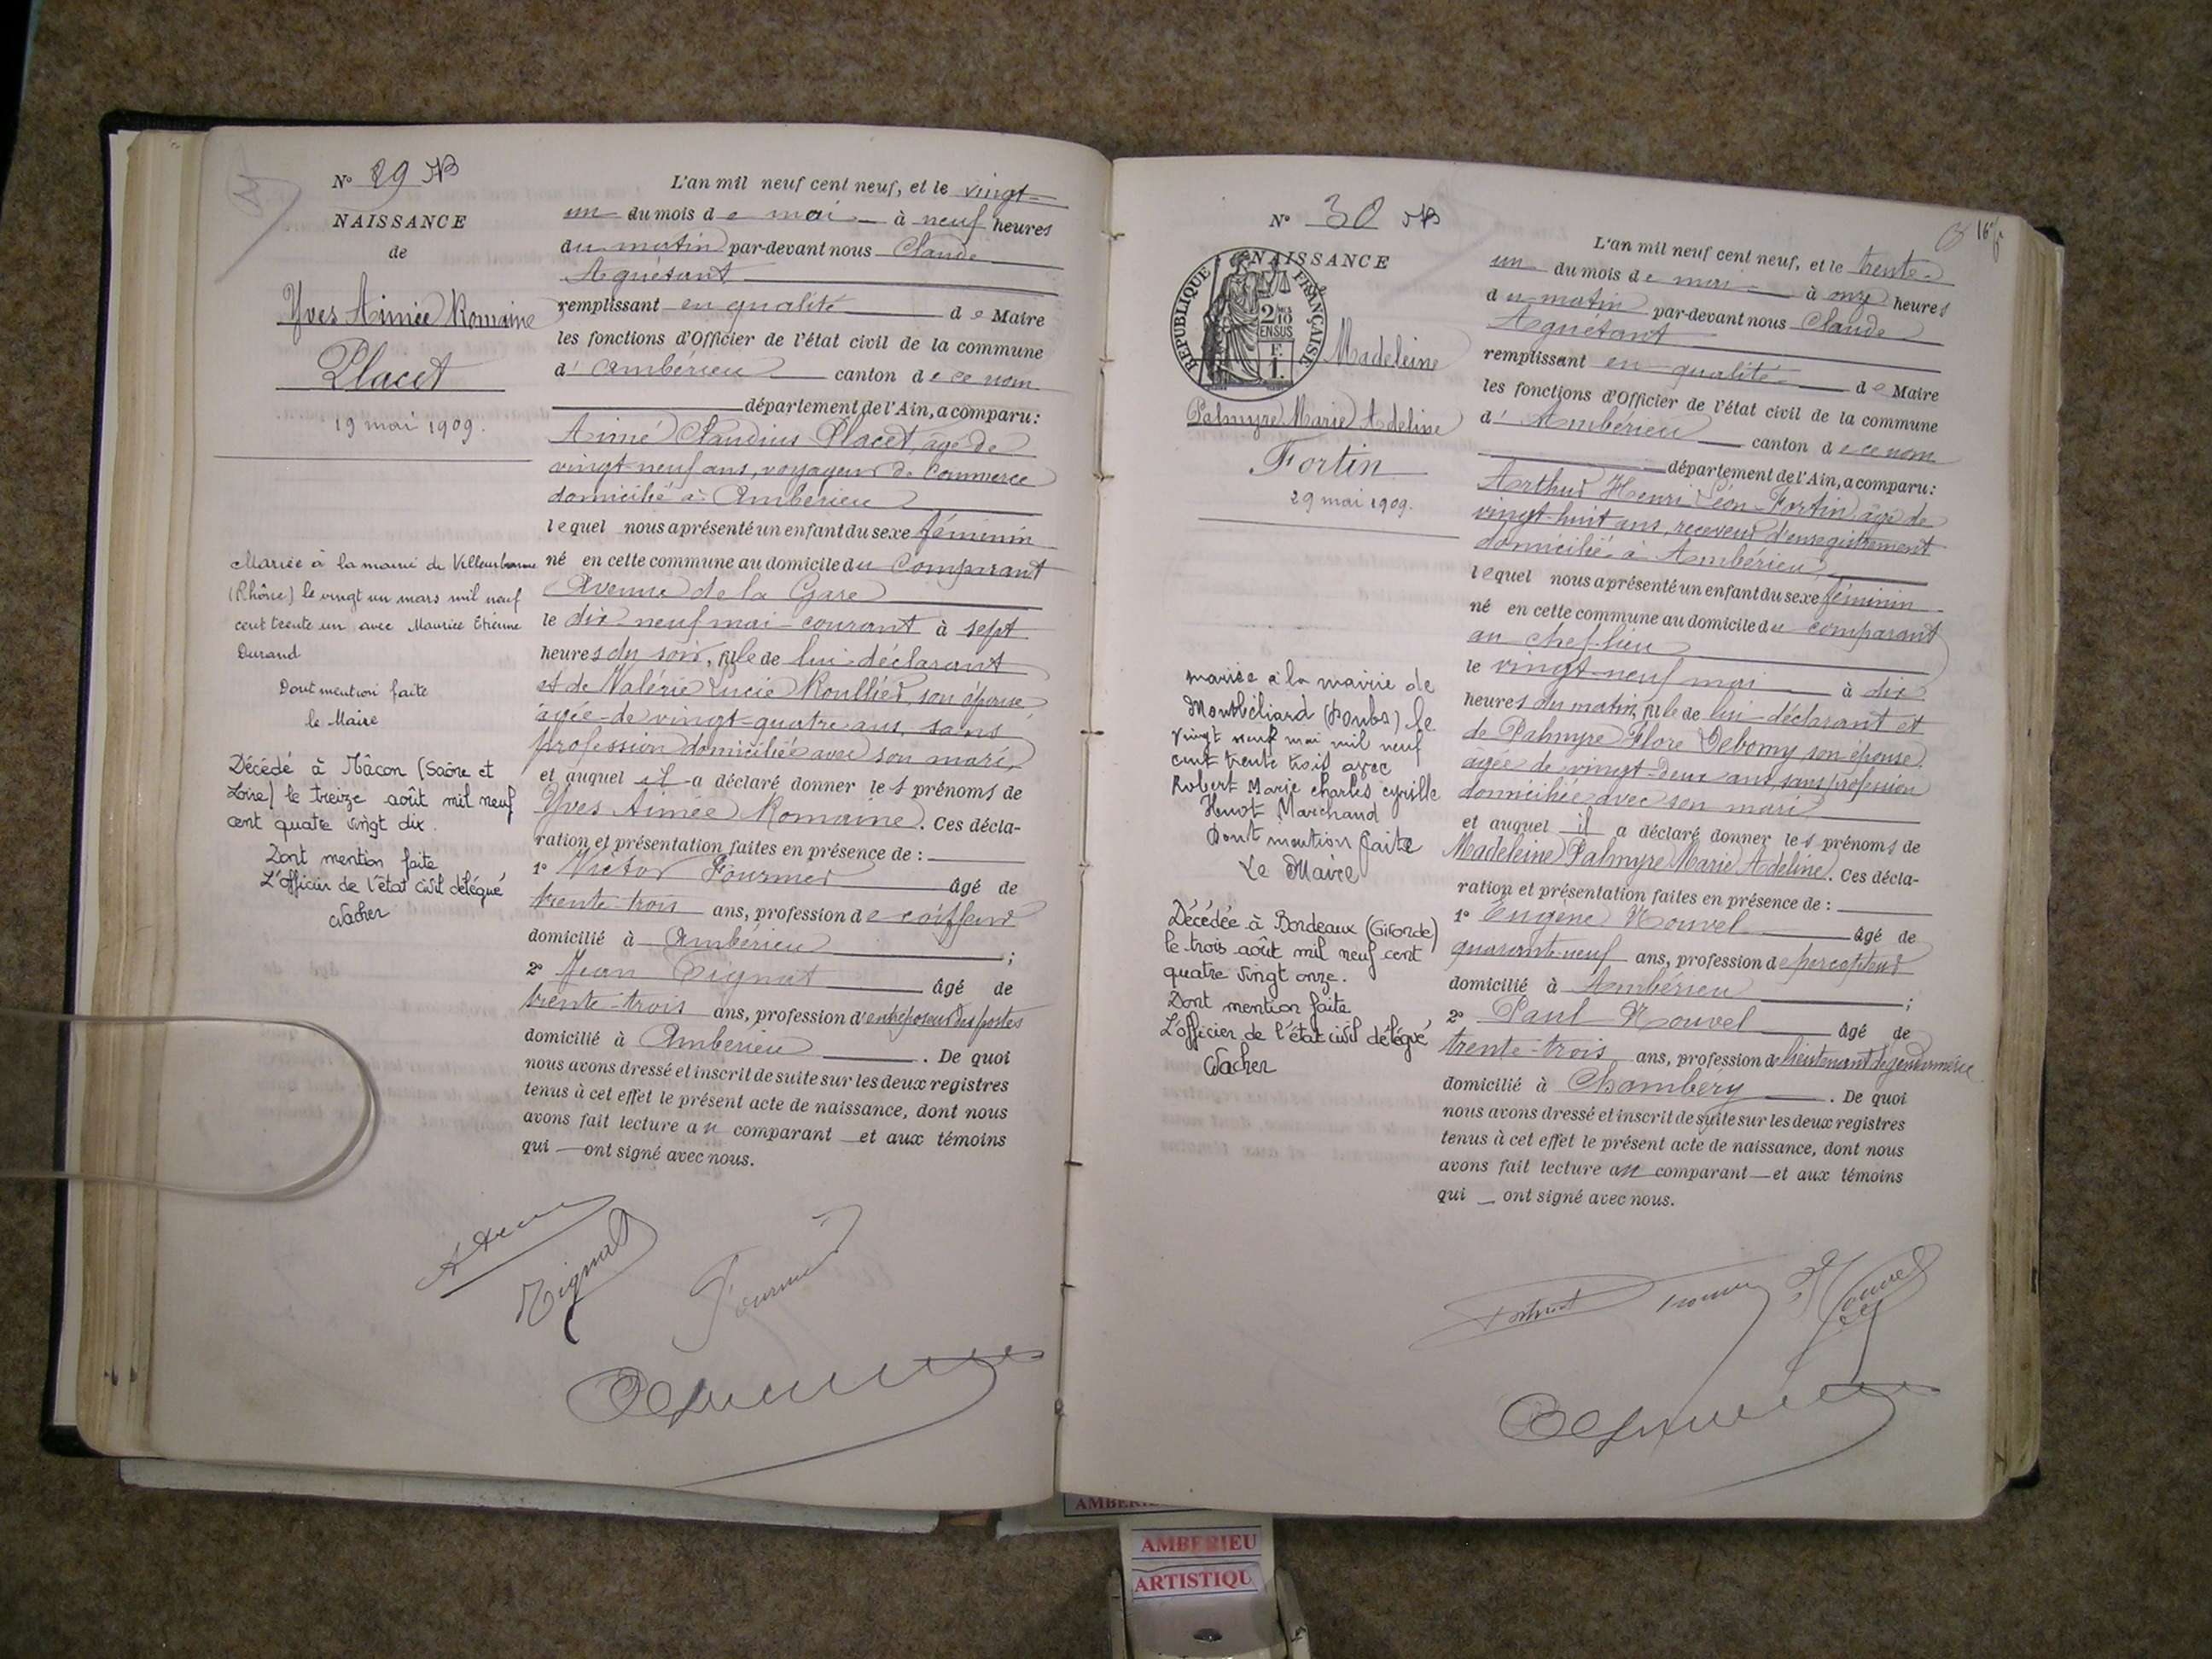 N° 29
NAISSANCE
de
Yves Aimée Romaine
Placet
19 mai 1909.
Mariée à la mairie de Villeurbanne
(Rhône) le vingt un mars mil neuf
cent trente un avec Maurice Etienne
Durand
Dont mention faite
le Maire
Décédé à Mâcon (Saône et
Loire) le treize août mil neuf
cent quatre vingt dix.
Dont mention faite
L'officier de l'état civil délégué
Wacher
L'an mil neuf cent neuf, et le vingt-
un du mois de mai à neuf heures
du matin par-devant nous Claude
Aguétant
remplissant en qualité de Maire
les fonctions d'Officier de l'état civil de la commune
d'Ambérieu canton de ce nom
département de l'Ain, a comparu:
Aimé Claudius Placet, âgé de
vingt-neuf ans, voyageur de Commerce
domicilié à Ambérieu
lequel nous a présenté un enfant du sexe féminin
né en cette commune au domicile du Comparant
Avenue de la Gare
le dix neuf mai courant à sept
heures du soir, fille de lui déclarant
et de Valérie Lucie Roullier, son épouse
âgée de vingt-quatre ans, sans
profession domiciliée avec son mari,
et auquel il a déclaré donner les prénoms de
Yves Aimée Romaine. Ces décla-
ration et présentation faites en présence de :
1° Victor Fournier âgé de
trente-trois ans, profession de coiffeur
domicilié à Ambérieu ;
2° Jean Tignat âgé de
trente-trois ans, profession d'entreposeur des postes
domicilié à Ambérieu . De quoi
nous avons dressé et inscrit de suite sur les deux registres
tenus à cet effet le présent acte de naissance, dont nous
avons fait lecture au comparant et aux témoins
qui ont signé avec nous.
Tignat
Fournier
N° 30
NAISSANCE
REPUBLIQUE FRANÇAISE
2/10
EN SUS
F.
1.
Madeleine
Palmyre Marie Adeline
Fortin
29 mai 1909.
mariée à la mairie de
Montbéliard (Doubs) le
vingt neuf mai mil neuf
cent trente trois avec
Robert Marie Charles Cyrille
Huot Marchand
Dont mention faite
Le Maire
Décédée à Bordeaux (Gironde)
le trois août mil neuf cent
quatre vingt onze.
Dont mention faite
L'officier de l'état civil délégué
Wacher
16
L'an mil neuf cent neuf, et le trente-
un du mois de mai à onze heures
du matin par-devant nous Claude
Aguétant
remplissant en qualité de Maire
les fonctions d'Officier de l'état civil de la commune
d'Ambérieu canton de ce nom
département de l'Ain, a comparu:
Arthur Henri Léon Fortin âgé de
vingt-huit ans, receveur d'enregistrement
domicilié à Ambérieu,
lequel nous a présenté un enfant du sexe féminin
né en cette commune au domicile du comparant
au chef-lieu
le vingt-neuf mai à dix
heures du matin, fille de lui déclarant et
de Palmyre Flore Debomy son épouse,
âgée de vingt-deux ans, sans profession
domiciliée avec son mari
et auquel il a déclaré donner les prénoms de
Madeleine Palmyre Marie Adeline. Ces décla-
ration et présentation faites en présence de :
1° Eugène Nouvel âgé de
quarante-neuf ans, profession de percepteur
domicilié à Ambérieu ;
2° Paul Nouvel âgé de
trente-trois ans, profession de lieutenant de gendarmerie
domicilié à Chambéry . De quoi
nous avons dressé et inscrit de suite sur les deux registres
tenus à cet effet le présent acte de naissance, dont nous
avons fait lecture au comparant et aux témoins
qui ont signé avec nous.
AMBERIEU
ARTISTIQU